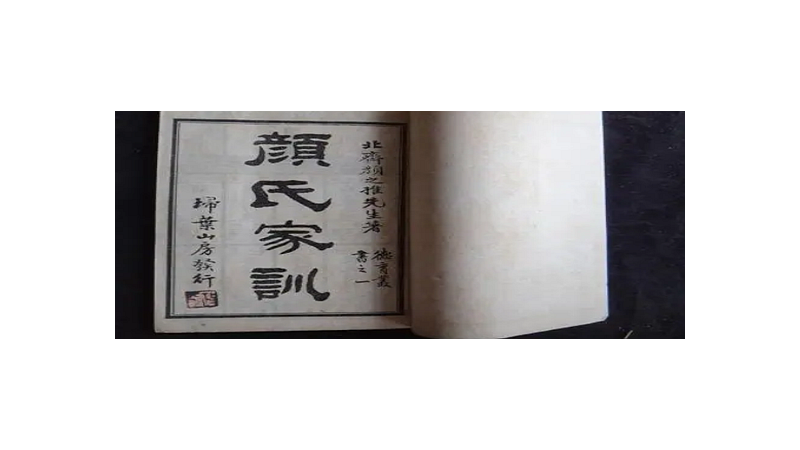 北齊顏之推先生著
德育叢書之一
顏氏家訓
掃葉山房發行